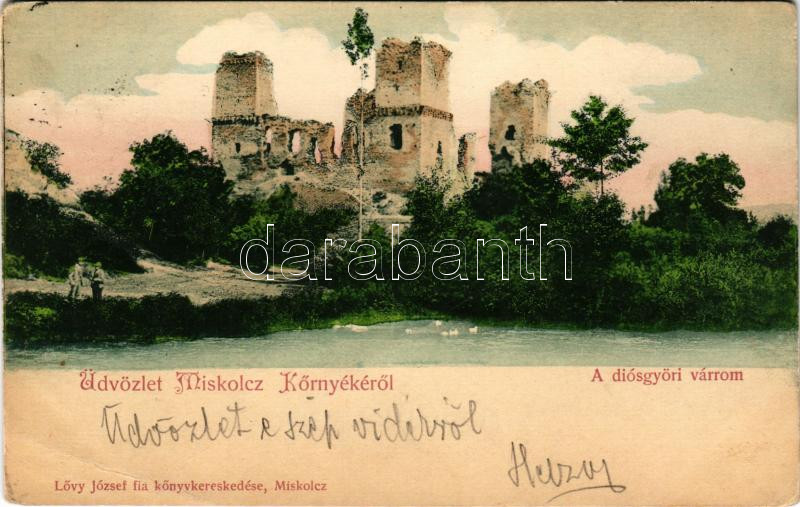 darabanth
Üdvözlet Miskolcz Kőrnyékéről
A diósgyöri várrom
Üdvözlet e szép vidékről
Lővy József fia kőnyvkereskedése, Miskolcz